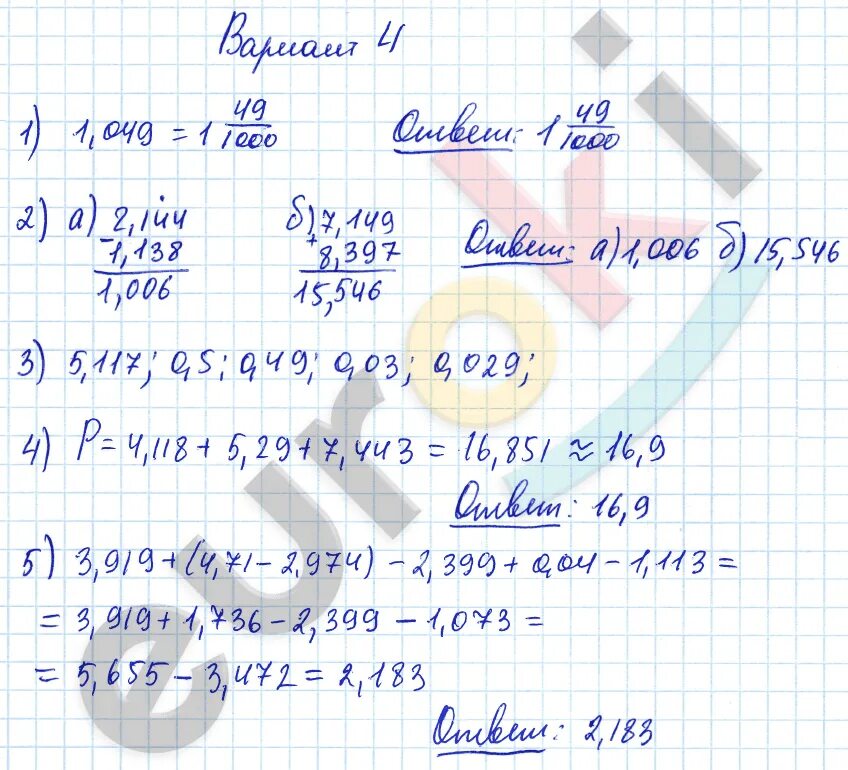 Вариант 4
1) 1,049 = 1 49/1000 Ответ: 1 49/1000
2) а) 2,144 б) 7,149
- 1,138 + 8,397 Ответ: а) 1,006 б) 15,546
1,006 15,546
3) 5,117; 0,5; 0,49; 0,03; 0,029;
4) P = 4,118 + 5,29 + 7,443 = 16,851 ≈ 16,9
Ответ: 16,9
5) 3,919 + (4,71 - 2,974) - 2,399 + 0,04 - 1,113 =
= 3,919 + 1,736 - 2,399 - 1,073 =
= 5,655 - 3,472 = 2,183
Ответ: 2,183
euroki